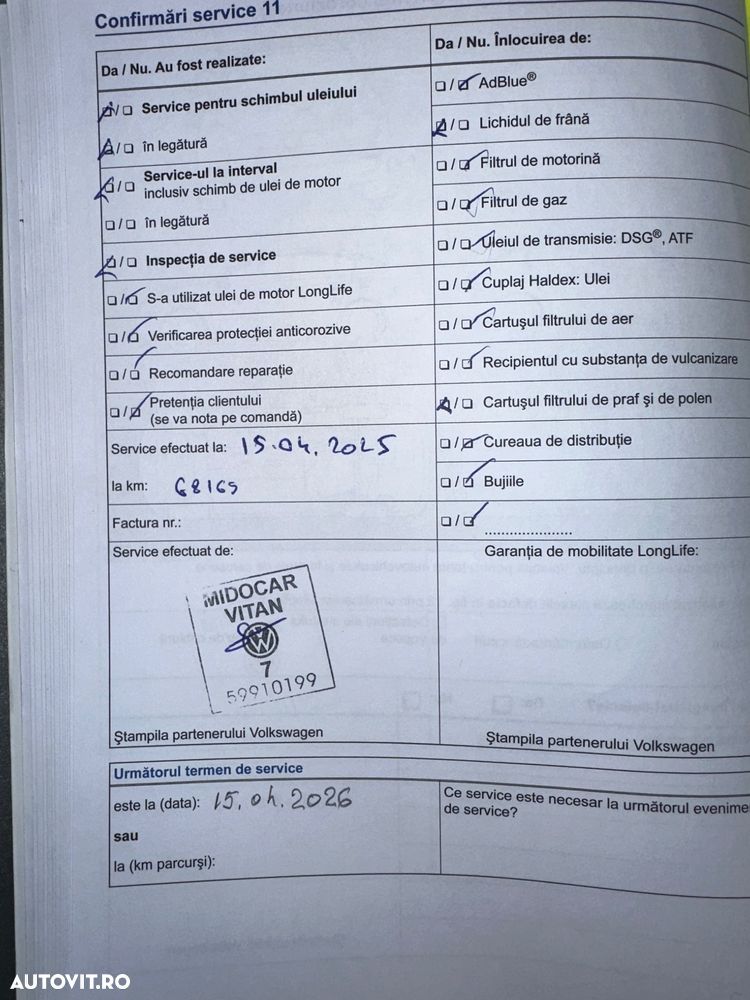 Confirmări service 11
Da / Nu. Au fost realizate:
☑/☐ Service pentru schimbul uleiului
☑/☐ în legătură
☑/☐ Service-ul la interval
inclusiv schimb de ulei de motor
☐/☐ în legătură
☑/☐ Inspecția de service
☐/☑ S-a utilizat ulei de motor LongLife
☐/☑ Verificarea protecției anticorozive
☐/☑ Recomandare reparație
☐/☑ Pretenția clientului
(se va nota pe comandă)
Service efectuat la: 15.04.2025
la km: 68165
Factura nr.:
Service efectuat de:
MIDOCAR
VITAN
7
59910199
Ștampila partenerului Volkswagen
Da / Nu. Înlocuirea de:
☐/☑ AdBlue®
☑/☐ Lichidul de frână
☐/☑ Filtrul de motorină
☐/☑ Filtrul de gaz
☐/☑ Uleiul de transmisie: DSG®, ATF
☐/☑ Cuplaj Haldex: Ulei
☐/☑ Cartușul filtrului de aer
☐/☑ Recipientul cu substanța de vulcanizare
☑/☐ Cartușul filtrului de praf și de polen
☐/☑ Cureaua de distribuție
☐/☑ Bujiile
☐/☑ ......................
Garanția de mobilitate LongLife:
Ștampila partenerului Volkswagen
Următorul termen de service
este la (data): 15.04.2026
sau
la (km parcurși):
Ce service este necesar la următorul evenime
de service?
AUTOVIT.RO